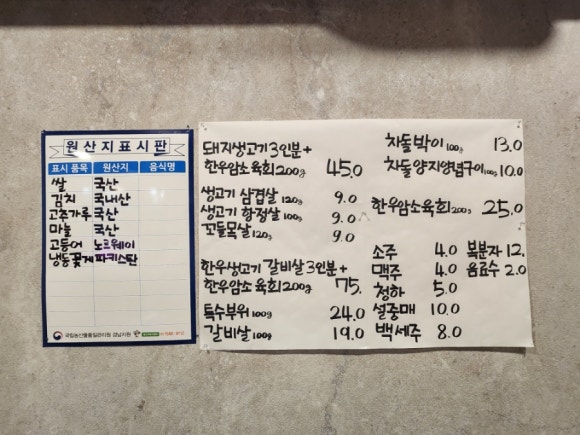 원산지표시판
표시 품목 원산지 음식명
쌀 국산
김치 국내산
고추가루 국산
마늘 국산
고등어 노르웨이
냉동꽃게 파키스탄
국립농산물품질관리원 경남지원
돼지생고기 3인분+
한우암소 육회 200g 45.0
생고기 삼겹살 120g 9.0
생고기 항정살 100g 9.0
꼬들목살 120g 9.0
한우생고기 갈비살 3인분+
한우암소 육회 200g 75.
특수부위 100g 24.0
갈비살 100g 19.0
차돌박이 100g 13.0
차돌양지양념구이 100g 10.0
한우암소육회 200g 25.0
소주 4.0 복분자 12.
맥주 4.0 음료수 2.0
청하 5.0
설중매 10.0
백세주 8.0